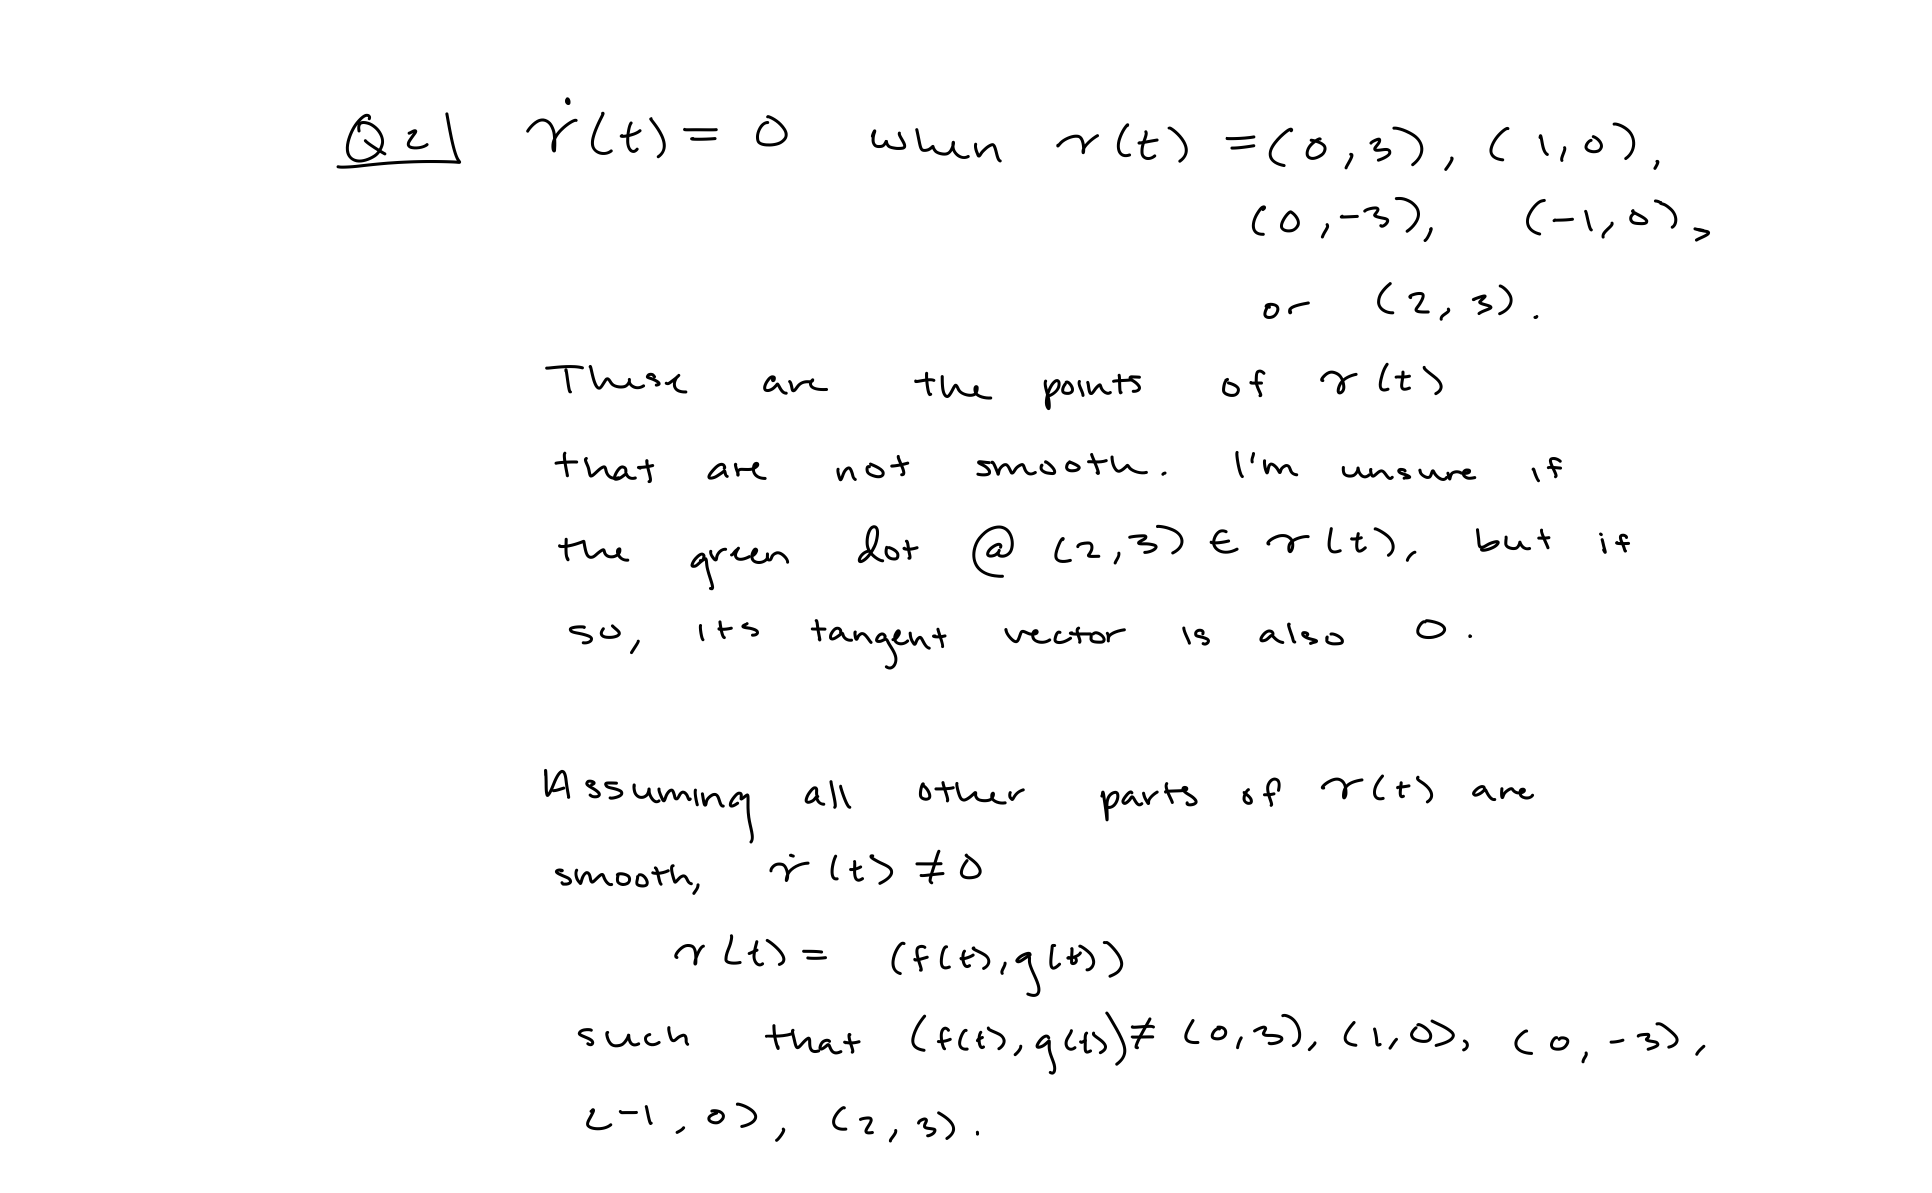 Q2| γ̇(t) = 0 when γ(t) = (0,3), (1,0),
(0,-3), (-1,0),
or (2,3).
These are the points of γ(t)
that are not smooth. I'm unsure if
the green dot @ (2,3) ∈ γ(t), but if
so, its tangent vector is also 0.
Assuming all other parts of γ(t) are
smooth, γ̇(t) ≠ 0
γ(t) = (f(t), g(t))
such that (f(t), g(t)) ≠ (0,3), (1,0), (0,-3),
(-1,0), (2,3).